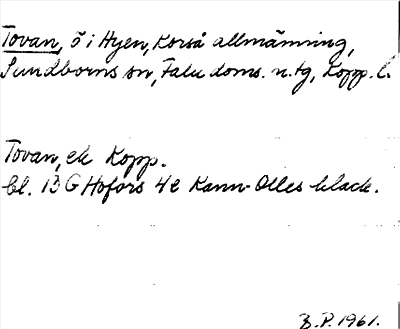 Tovan, ö i Hyen, Korså allmänning,
Sundborns sn, Falu doms. n. tg, Kopp. l.
Tovan, ek Kopp.
bl. 13 G Hofors 4e Kann-Olles black.
B.P. 1961.